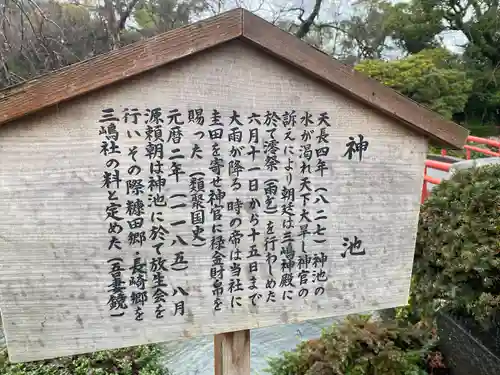 神池
天長四年(八二七)神池の
水が涸れ天下大旱し神官の
訴えにより朝廷は三嶋神殿に
於て澪祭(雨乞)を行わしめた
六月十一日から十五日まで
大雨が降る 時の帝は当社に
圭田を寄せ神官に禄金財帛を
賜った(類聚国史)
元暦二年(一一八五)八月
源頼朝は神池に於て放生会を
行いその際糠田郷・長崎郷を
三嶋社の料と定めた(吾妻鏡)